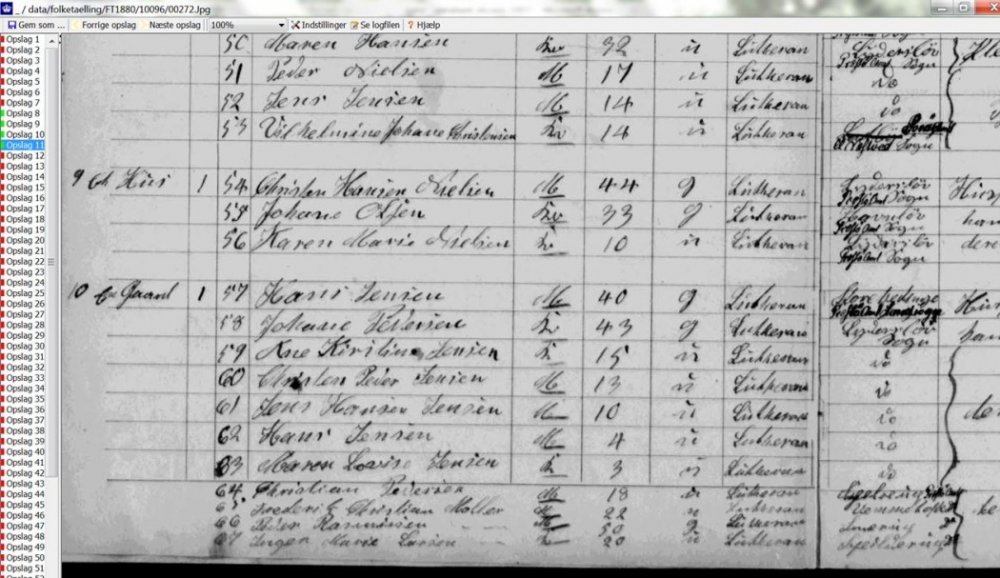 _ / data/folketaelling/FT1880/10096/00272.Jpg
Gem som ... Forrige opslag Næste opslag 100% Indstillinger Se logfilen Hjælp
Opslag 1
Opslag 2
Opslag 3
Opslag 4
Opslag 5
Opslag 6
Opslag 7
Opslag 8
Opslag 9
Opslag 10
Opslag 11
Opslag 12
Opslag 13
Opslag 14
Opslag 15
Opslag 16
Opslag 17
Opslag 18
Opslag 19
Opslag 20
Opslag 21
Opslag 22
Opslag 23
Opslag 24
Opslag 25
Opslag 26
Opslag 27
Opslag 28
Opslag 29
Opslag 30
Opslag 31
Opslag 32
Opslag 33
Opslag 34
Opslag 35
Opslag 36
Opslag 37
Opslag 38
Opslag 39
Opslag 40
Opslag 41
Opslag 42
Opslag 43
Opslag 44
Opslag 45
Opslag 46
Opslag 47
Opslag 48
Opslag 49
Opslag 50
Opslag 51
50 Maren Hansen Kv 32 u Lutheran
51 Peder Nielsen M 17 u Lutheran do
52 Jens Jensen M 14 u Lutheran do
53 Vilhelmine Johane Christensen Kv 14 u Lutheran Sogn
9 Et Huus 1 54 Christen Hansen Nielsen M 44 g Lutheran Lyderslöv Sogn
55 Johane Olsen Kv 33 g Lutheran Havnlöv Sogn
56 Karen Marie Nielsen K 10 u Lutheran Lyderslöv Sogn
10 En Gaard 1 57 Hans Jensen M 40 g Lutheran Store Hedinge
58 Johane Pedersen K 43 g Lutheran Lyderslöv Sogn
59 Ane Kirstine Jensen K 15 u Lutheran do
60 Christen Peder Jensen M 13 u Lutheran do
61 Jens Hansen Jensen M 10 u Lutheran do
62 Hans Jensen M 4 u Lutheran do
63 Maren Lovise Jensen K 3 u Lutheran do
64 Christian Pedersen M 18 u Lutheran
65 Frederik Christian Møller M 22 u Lutheran
66 Peder Rasmussen M 50 g Lutheran
67 Marie Larsen K 20 u Lutheran